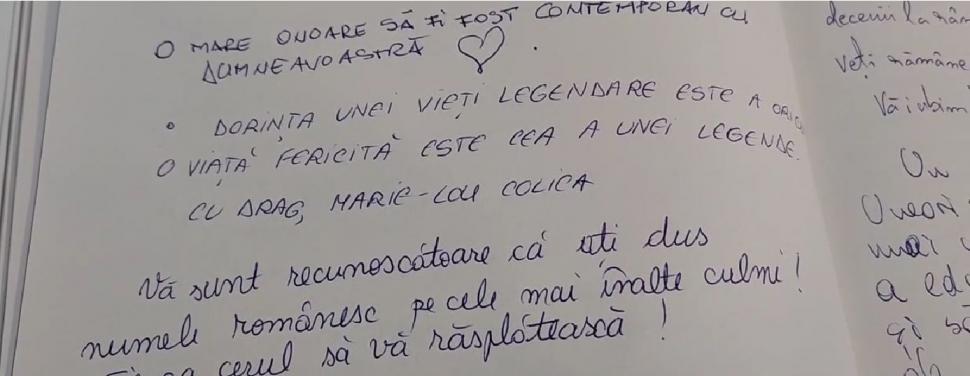 O MARE ONOARE SĂ FI FOST CONTEMPORAN CU
DUMNEAVOASTRĂ
• DORINȚA UNEI VIEȚI LEGENDARE ESTE A
O VIAȚĂ FERICITĂ ESTE CEA A UNEI LEGENDE.
CU DRAG, MARIE-LOU COLICA
Vă sunt recunoscătoare că ați dus
numele românesc pe cele mai înalte culmi!
cerul să vă răsplătească!
decenii la
Veți rămâne
Vă iubim
Un
Uneori
mai
a
și